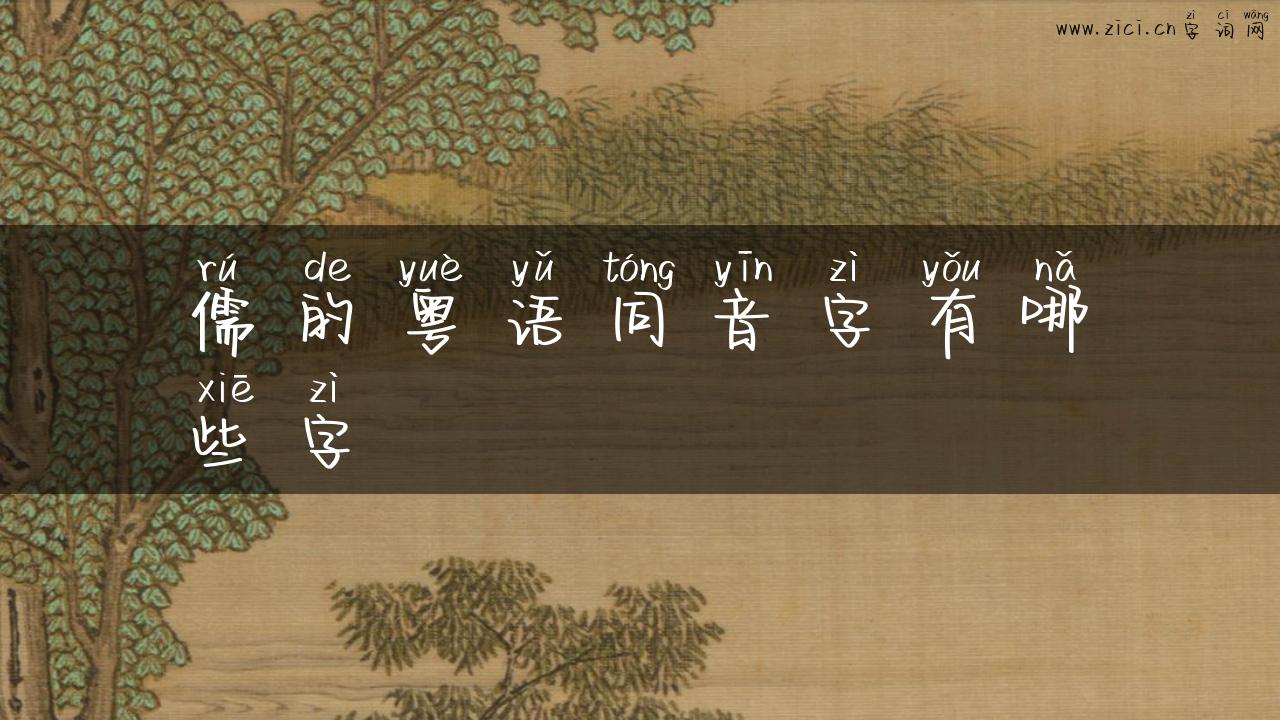 zì cí wǎng
www.zici.cn字词网
rú de yuè yǔ tóng yīn zì yǒu nǎ
儒的粤语同音字有哪
xiē zì
些字